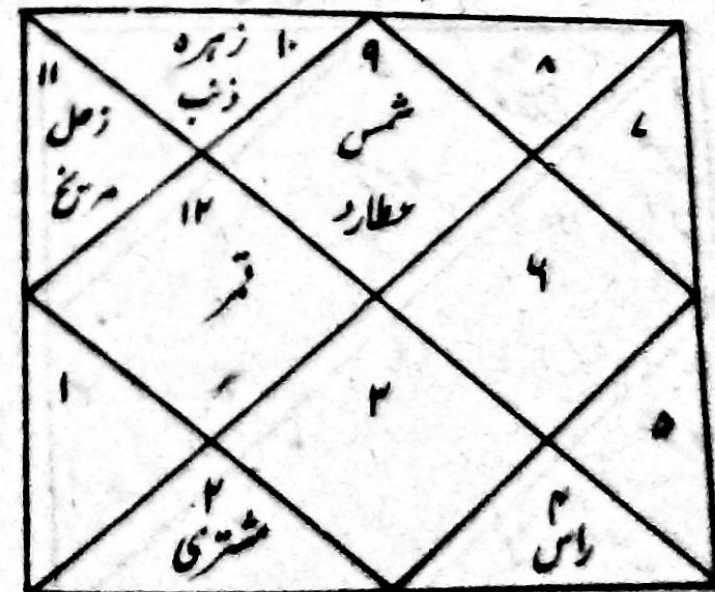 ۱۱
زحل
مریخ
زہرہ ۱۰
ذنب
۹
شمس
عطارد
۸
۷
۱۲
قمر
۶
۱
۳
۵
۲
مشتری
۴
راس